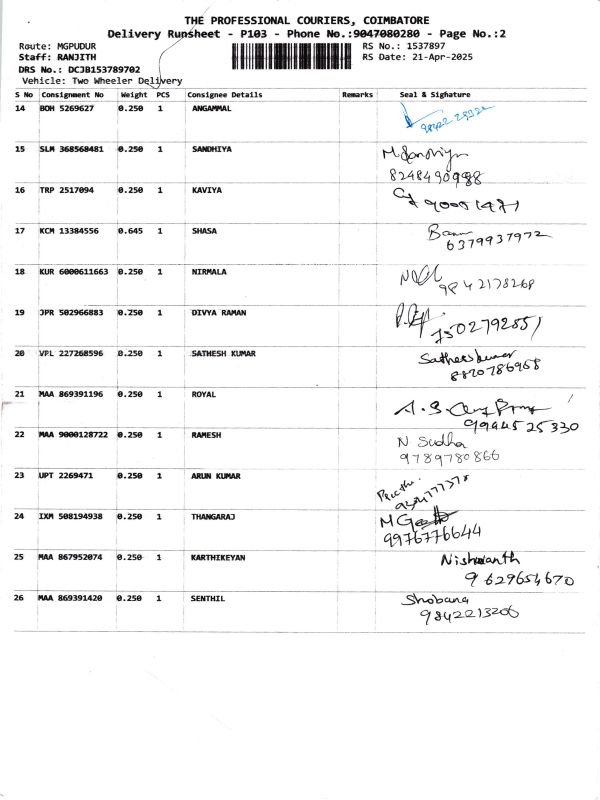 THE PROFESSIONAL COURIERS, COIMBATORE
Delivery Runsheet - P103 - Phone No.:9047080280 - Page No.:2
Route: MGPUDUR RS No.: 1537897
Staff: RANJITH RS Date: 21-Apr-2025
DRS No.: DCJB153789702
Vehicle: Two Wheeler Delivery
S No Consignment No Weight PCS Consignee Details Remarks Seal & Signature
14 BOH 5269627 0.250 1 ANGAMMAL
15 SLM 368568481 0.250 1 SANDHIYA
8248490988
16 TRP 2517094 0.250 1 KAVIYA
17 KCM 13384556 0.645 1 SHASA
6379937972
18 KUR 6000611663 0.250 1 NIRMALA
9842178268
19 JPR 502966883 0.250 1 DIVYA RAMAN
7502792851
20 VPL 227268596 0.250 1 SATHESH KUMAR Satheeskumar
8820786958
21 MAA 869391196 0.250 1 ROYAL
9994525330
22 MAA 9000128722 0.250 1 RAMESH N Sudha
9789780866
23 UPT 2269471 0.250 1 ARUN KUMAR
24 IXM 508194938 0.250 1 THANGARAJ
9976776644
25 MAA 867952074 0.250 1 KARTHIKEYAN Nishwanth
9629654670
26 MAA 869391420 0.250 1 SENTHIL Shobana
9842213206